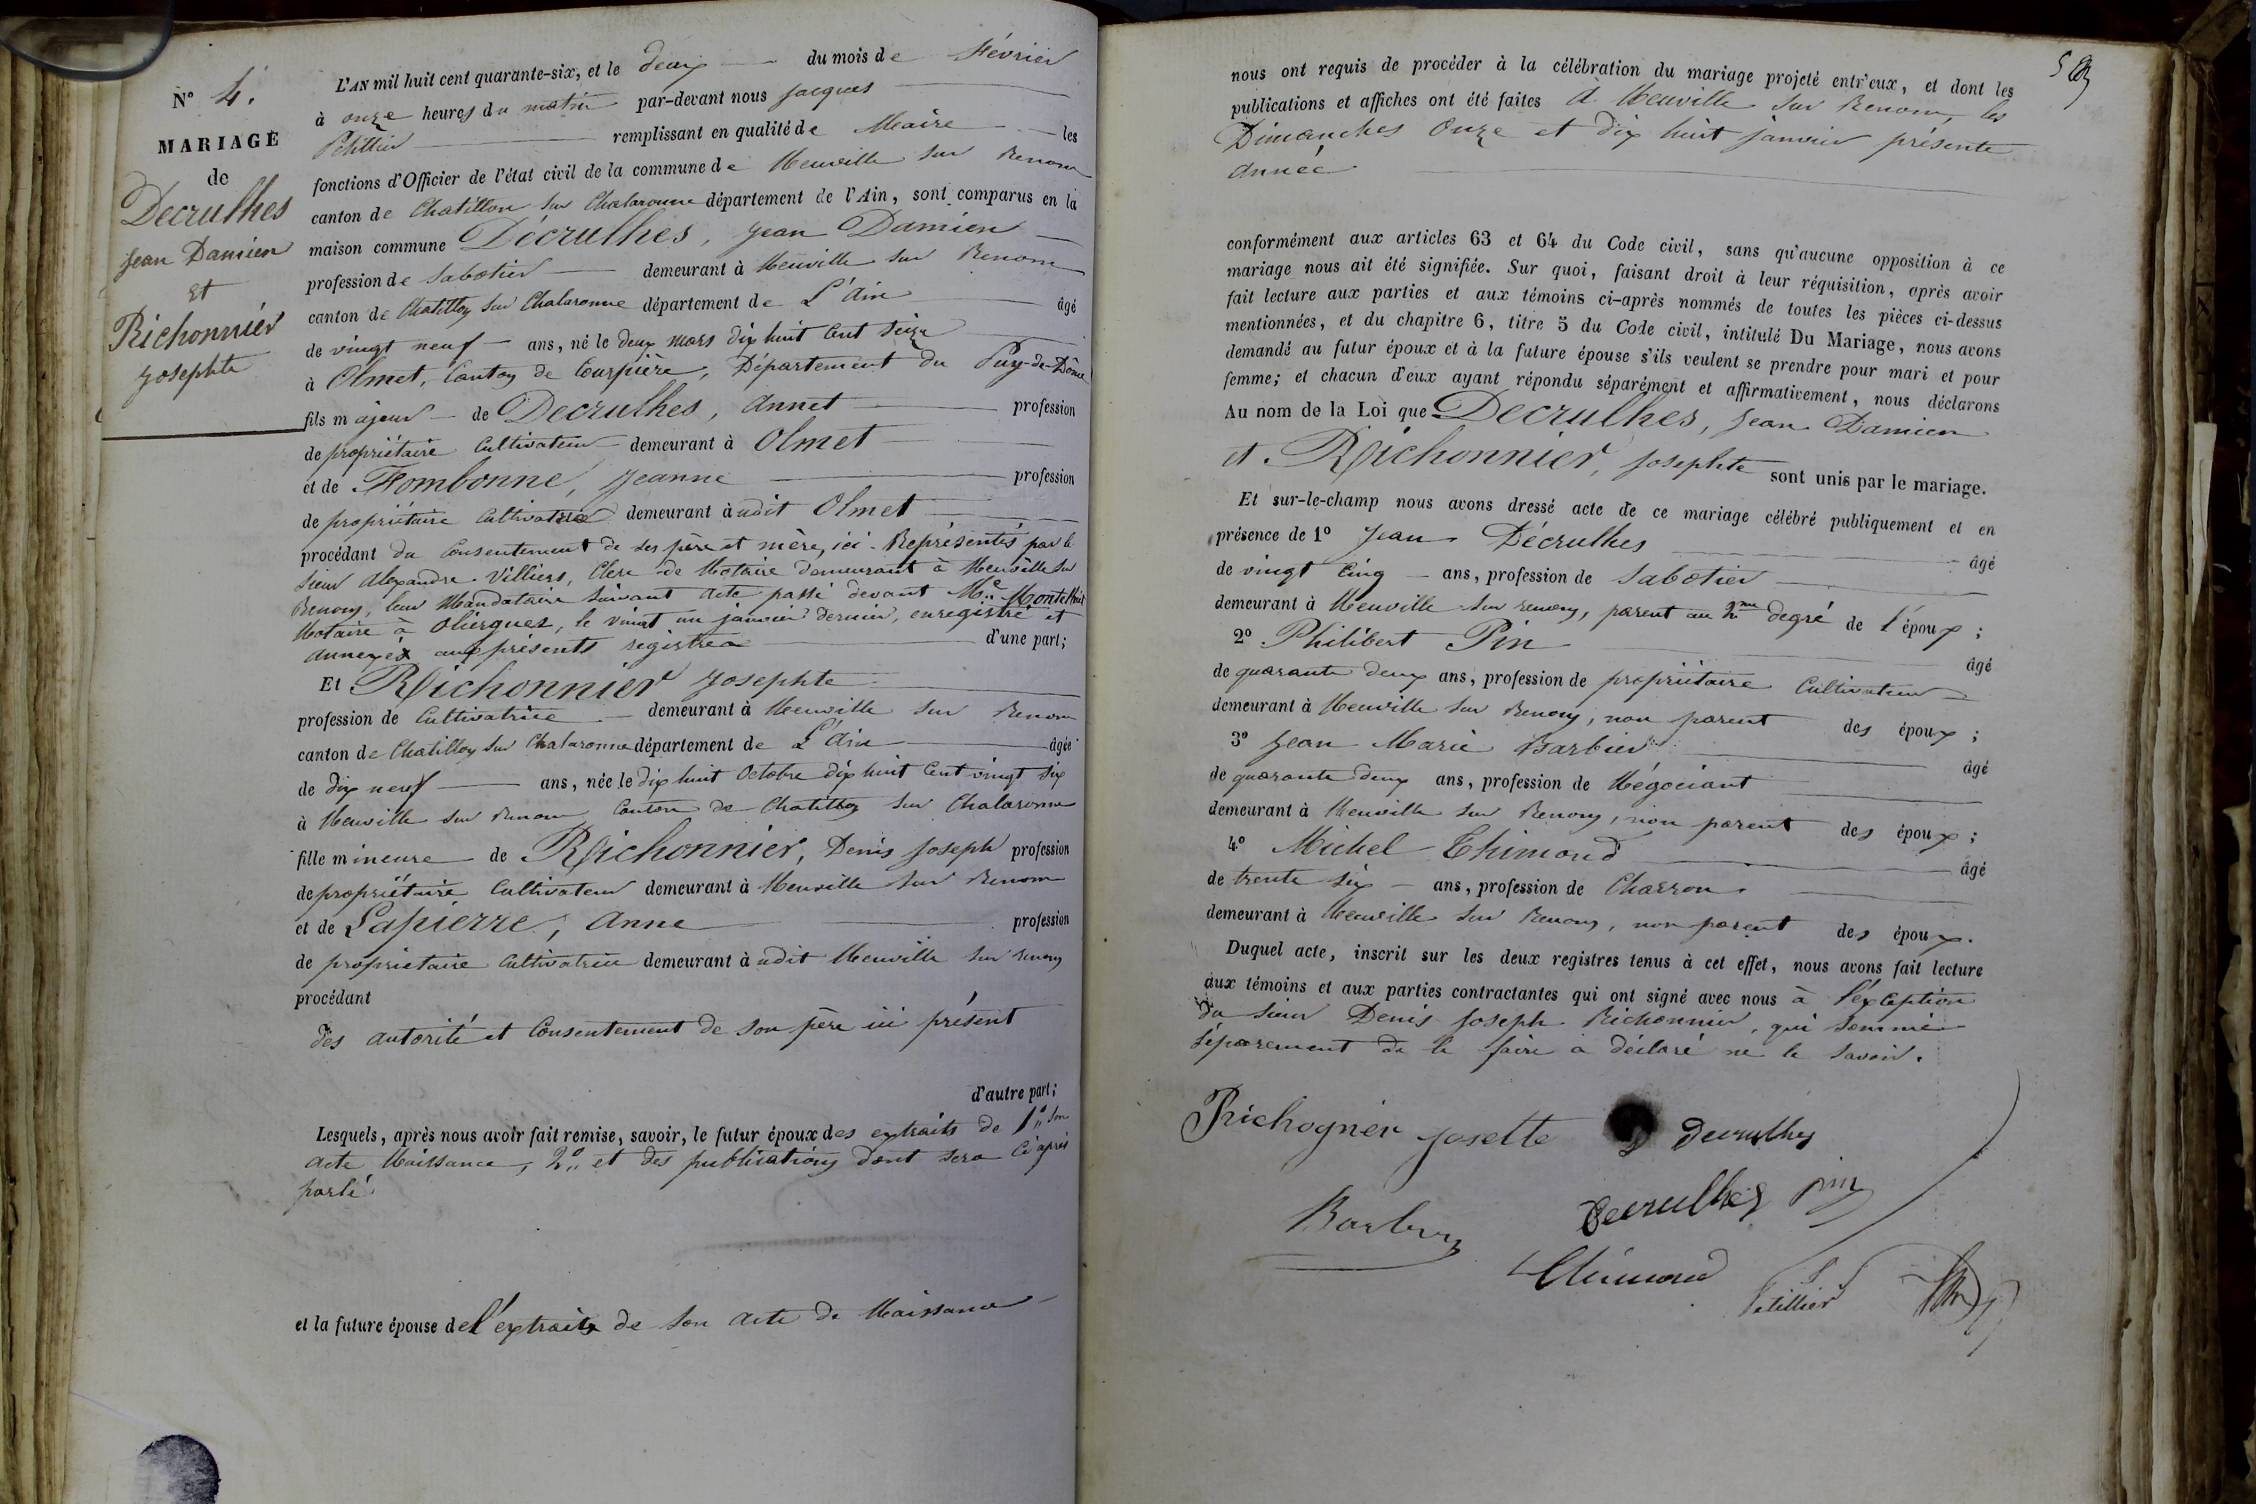 N° 4.
MARIAGE
de
Decrulhes
Jean Damien
et
Richonnier
Josephte
L'AN mil huit cent quarante-six, et le deux du mois de Février
à onze heures du matin par-devant nous Jacques
Petillier remplissant en qualité de Maire les
fonctions d'Officier de l'état civil de la commune de Neuville sur Renom
canton de Chatillon sur Chalaronne département de l'Ain, sont comparus en la
maison commune Décrulhes, Jean Damien
profession de Sabotier demeurant à Neuville sur Renom
canton de Chatillon sur Chalaronne département de L'Ain âgé
de vingt neuf ans, né le deux mars dix huit Cent Seize
à Olmet, Canton de Courpière, Département du Puy-de-Dôme
fils majeur de Decrulhes, Annet profession
de propriétaire Cultivateur demeurant à Olmet
et de Fombonne, Jeanne profession
de propriétaire Cultivatrice demeurant àudit Olmet
procédant du Consentement de ses père et mère, ici Représentés par le
Sieur Alexandre Villiers, Clerc de Notaire demeurant à Neuville sur
Renom, leur Mandataire suivant acte passé devant Me
Notaire à Olliergues, le vingt un janvier dernier, enregistré et
annexés aux présents registres d'une part;
Et Richonnier Josephte
profession de Cultivatrice demeurant à Neuville sur Renom
canton de Chatillon sur Chalaronne département de L'Ain âgée
de dix neuf ans, née le dix huit Octobre dix huit Cent vingt six
à Neuville sur Renom Canton de Chatillon sur Chalaronne
fille mineure de Richonnier, Denis Joseph profession
de propriétaire Cultivateur demeurant à Neuville sur Renom
et de Lapierre, Anne profession
de proprietaire Cultivatrice demeurant àudit Neuville sur renom
procédant
des autorité et Consentement de son père ici présent
d'autre part;
Lesquels, après nous avoir fait remise, savoir, le futur époux des extraits de 1° son
acte Naissance, 2° et des publications dont sera Ci après
parlé
et la future épouse de l'extraits de son acte de Naissance
nous ont requis de procéder à la célébration du mariage projeté entr'eux, et dont les
publications et affiches ont été faites à Neuville sur Renom, les
Dimanches Onze et dix huit janvier présente
année
conformément aux articles 63 et 64 du Code civil, sans qu'aucune opposition à ce
mariage nous ait été signifiée. Sur quoi, faisant droit à leur réquisition, après avoir
fait lecture aux parties et aux témoins ci-après nommés de toutes les pièces ci-dessus
mentionnées, et du chapitre 6, titre 5 du Code civil, intitulé Du Mariage, nous avons
demandé au futur époux et à la future épouse s'ils veulent se prendre pour mari et pour
femme; et chacun d'eux ayant répondu séparément et affirmativement, nous déclarons
Au nom de la Loi que Decrulhes, Jean Damien
et Richonnier, Josephte sont unis par le mariage.
Et sur-le-champ nous avons dressé acte de ce mariage célébré publiquement et en
présence de 1° Jean Décrulhes âgé
de vingt Cinq ans, profession de Sabotier
demeurant à Neuville sur renom, parent au 2me degré de l'époux;
2° Philibert Pin âgé
de quarante deux ans, profession de propriétaire Cultivateur
demeurant à Neuville sur Renom, non parent des époux;
3° Jean Marie Barbier âgé
de quarante deux ans, profession de Négociant
demeurant à Neuville sur Renom, non parent des époux;
4° Michel Thimond âgé
de trente six ans, profession de Charron
demeurant à Neuville sur Renom, non parent des époux.
Duquel acte, inscrit sur les deux registres tenus à cet effet, nous avons fait lecture
aux témoins et aux parties contractantes qui ont signé avec nous à l'exception
du sieur Denis Joseph Richonnier, qui sommé
séparement de le faire a déclaré ne le savoir.
Richognier Josette Decrulhes
Barbier Decrulhes pin
Thimond Petillier